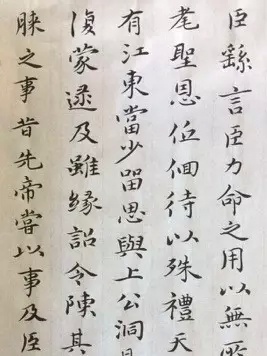 臣繇言臣力命之用以無所
耄聖恩低佪待以殊禮天
有江東當少留思與上公洞
復蒙逮及雖緣詔令陳其
睞之事昔先帝嘗以事及臣